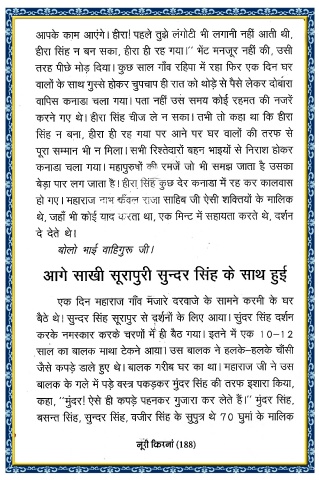 आपके काम आएंगे। हीरा! पहले तुझे लंगोटी भी लगानी नहीं आती थी,
हीरा सिंह न बन सका, हीरा ही रह गया।'' भेंट मन्जूर नहीं की, उसी
तरह पीछे मोड़ दिया। कुछ साल गाँव रहिपा में रहा फिर एक दिन घर
वालों के साथ गुस्से होकर चुपचाप ही रात को थोड़े से पैसे लेकर दोबारा
वापिस कनाडा चला गया। पता नहीं उस समय कोई रहमत की नजरें
करने गए थे। हीरा सिंह चीज ले न सका। तभी तो कहा था कि हीरा
सिंह न बना, हीरा ही रह गया पर आने पर घर वालों की तरफ से
पूरा सम्मान भी न मिला। सभी रिश्तेदारों बहन भाइयों से निराश होकर
कनाडा चला गया। महापुरुषों की रमजें जो भी समझ जाता है उसका
बेड़ा पार लग जाता है। हीरा सिंह कुछ देर कनाडा में रह कर कालवास
हो गए। महाराज नाभ कंवल राजा साहिब जी ऐसी शक्तियों के मालिक
थे, जहाँ भी कोई याद करता था, एक मिन्ट में सहायता करते थे, दर्शन
दे देते थे।
बोलो भाई वाहिगुरू जी।
आगे साखी सूरापुरी सुन्दर सिंह के साथ हुई
एक दिन महाराज गाँव मजारे दरवाजे के सामने करमी के घर
बैठे थे। सुन्दर सिंह सूरापुर से दर्शनों के लिए आया। सुंदर सिंह दर्शन
करके नमस्कार करके चरणों में ही बैठ गया। इतने में एक 10-12
साल का बालक माथा टेकने आया। उस बालक ने हलके-हलके चौंसी
जैसे कपड़े डाले हुए थे। बालक गरीब घर का था। महाराज जी ने उस
बालक के गले में पड़े वस्त्र पकड़कर मुंदर सिंह की तरफ इशारा किया,
कहा, ''मुंदर! ऐसे ही कपड़े पहनकर गुजारा कर लेते हैं।'' मुंदर सिंह,
बसन्त सिंह, सुन्दर सिंह, वजीर सिंह के सुपुत्र थे 70 घुमां के मालिक
नूरी किरनां (188)